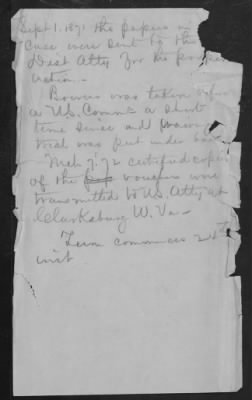 Sept 1. 1871 the papers in
case were sent to the
Dist Atty for the prosecu
tion.—
Bowers was taken before
a U.S. Commr a short
time since and
trial was put under bail
Mch 7. 72 certified copies
of the vouchers were
transmitted to U.S. Atty at
Clarksburg W. Va—
Term commences 24th
inst